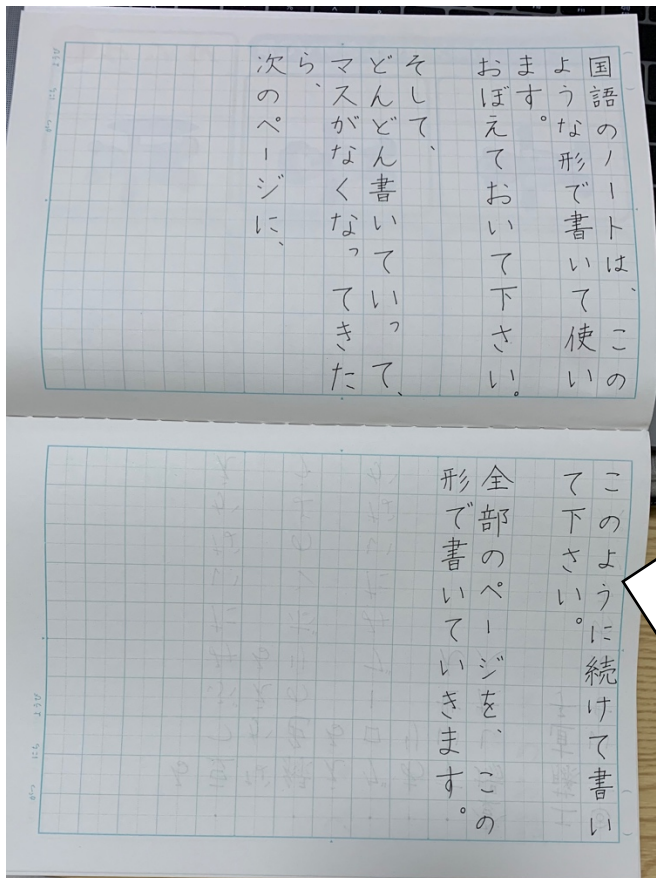 国語のノートは、この
ような形で書いて使い
ます。
おぼえておいて下さい。
そして、
どんどん書いていって、
マスがなくなってきた
ら、
次のページに、
このように続けて書い
て下さい。
全部のページを、この
形で書いていきます。